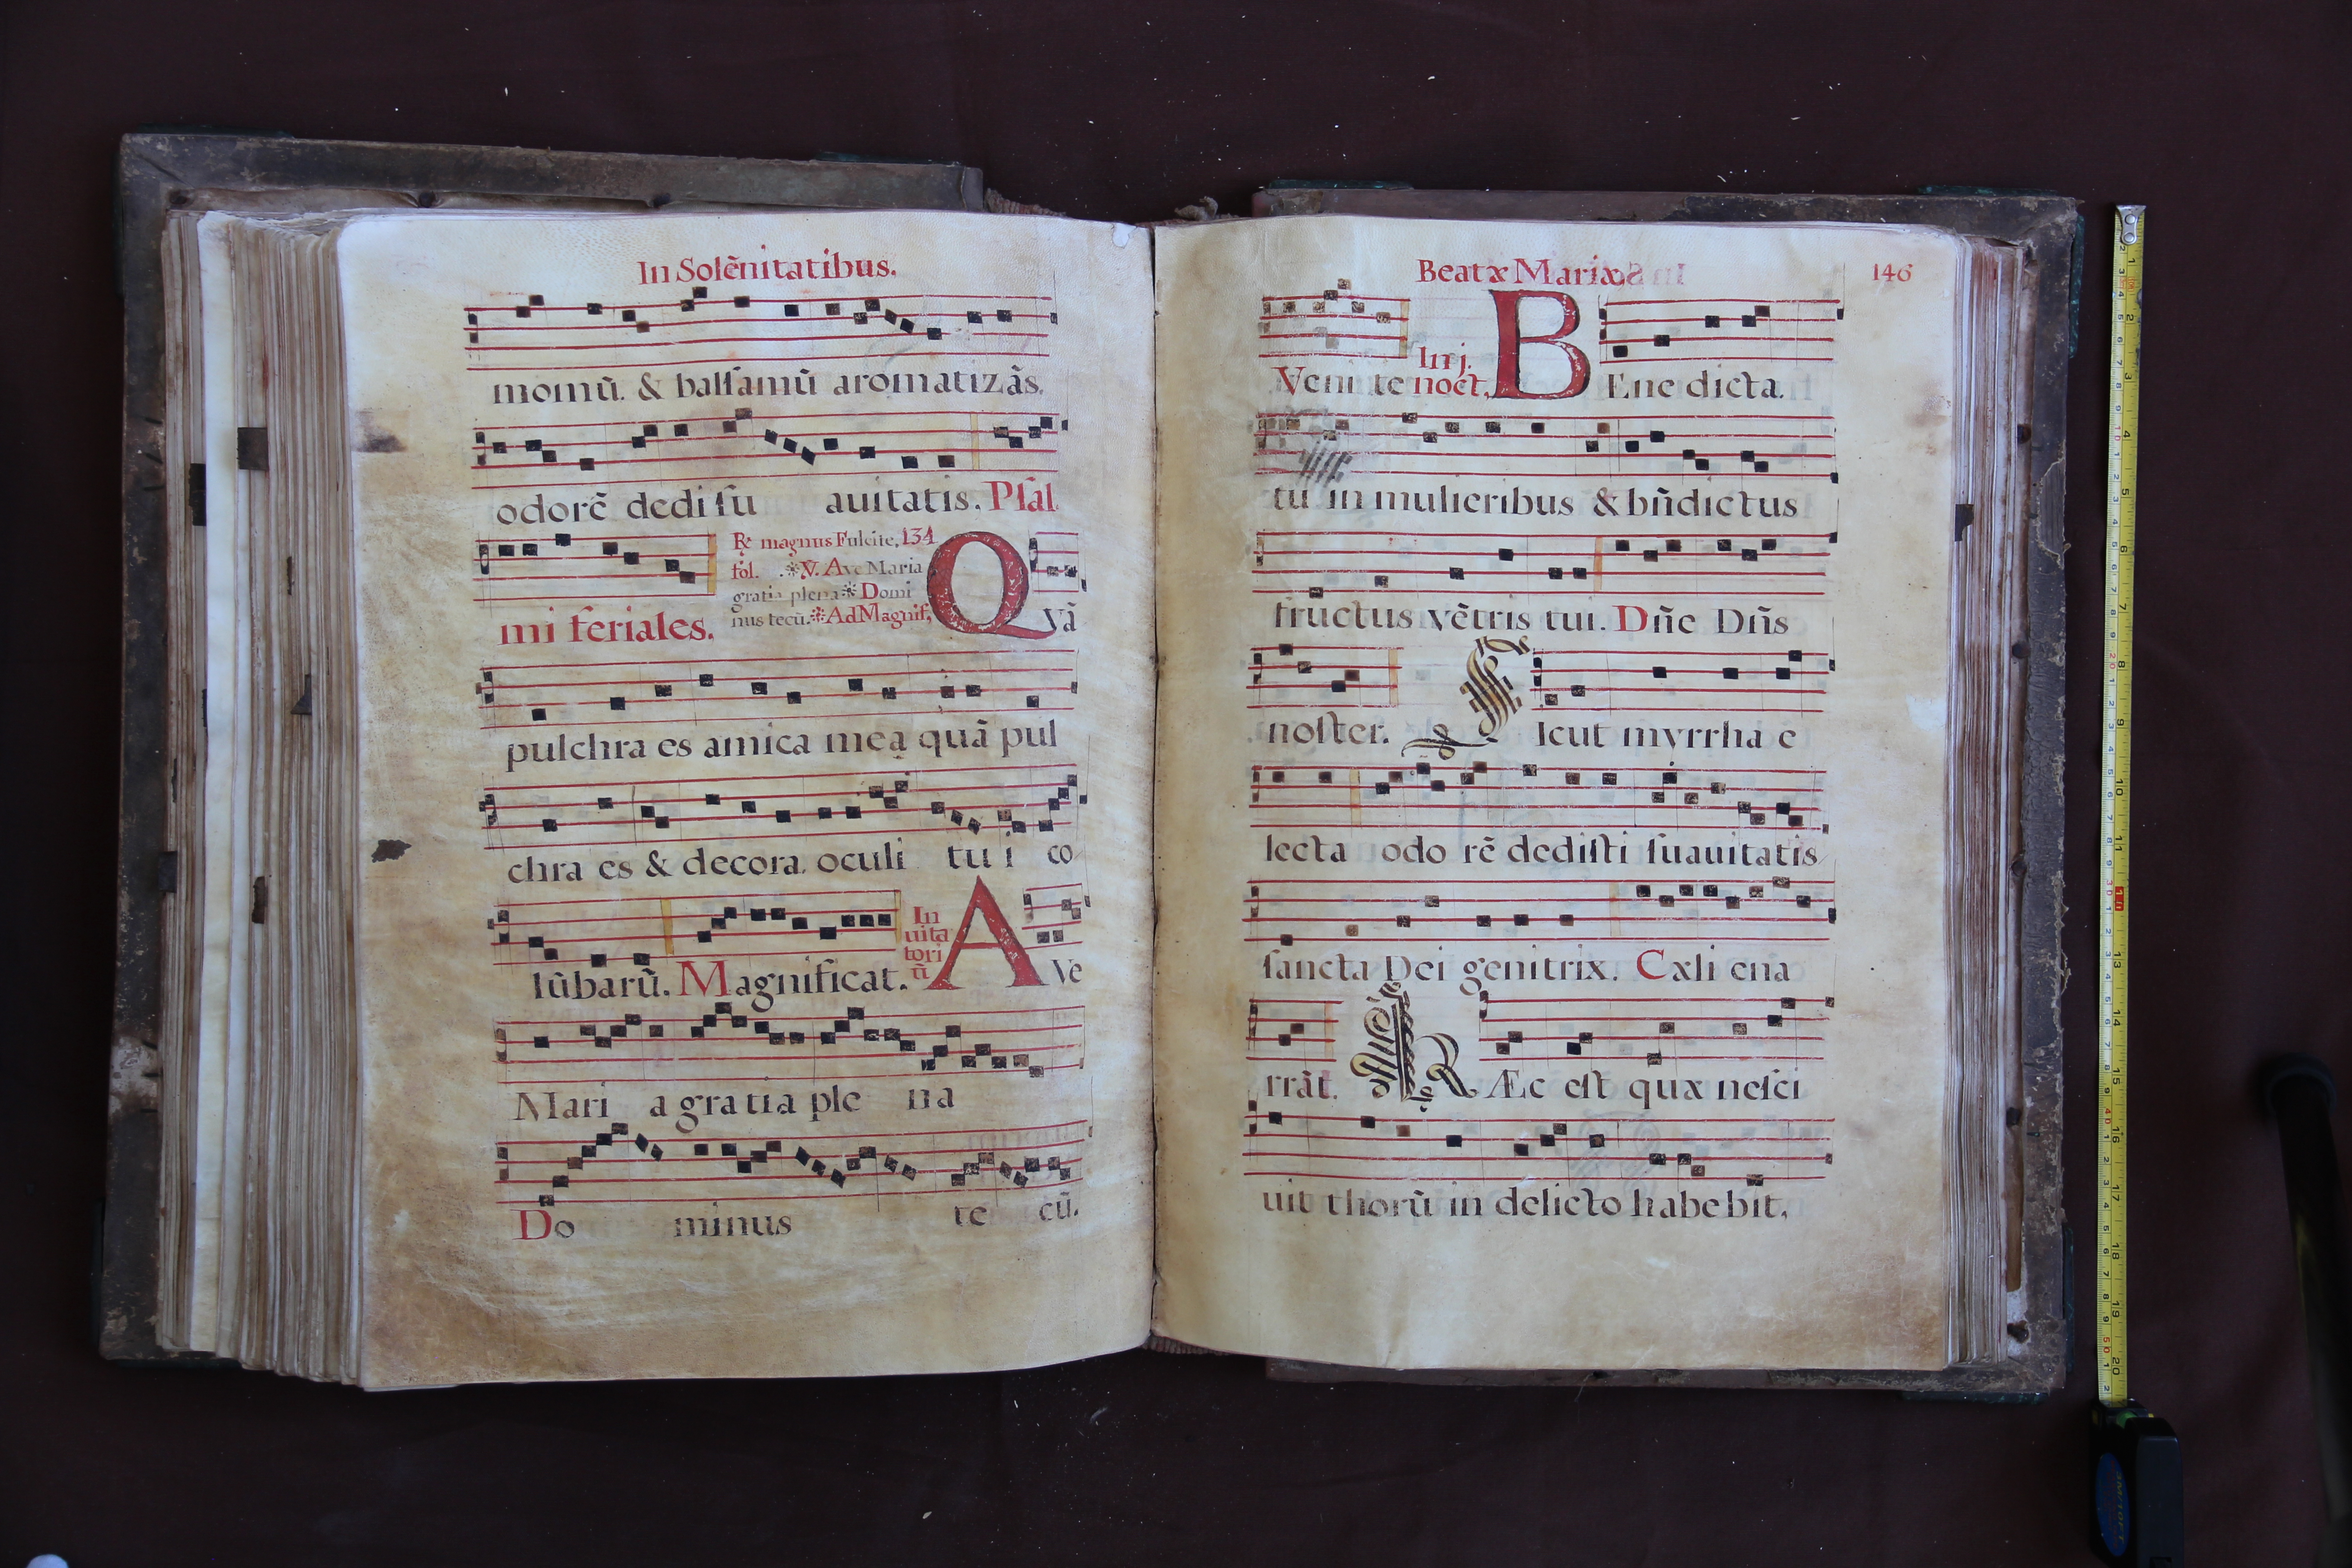 In Solẽnitatibus.
momũ. & balſamũ aromatizãs.
odorẽ dedi ſu auitatis. Pſal
mi feriales.
R. magnus Fulcite, 134
fol. V. Ave Maria
gratia plena Domi
nus tecũ. Ad Magnif.
Qvã
pulchra es amica mea quã pul
chra es & decora. oculi tu i co
lũbarũ. Magnificat.
In
uita
tori
ũ
AVe
Mari a gratia ple na
Do minus te cũ.
Beatæ Mariæ
146
Veni te
In j.
noct.
BEne dicta.
tu in mulieribus & bñdictus
fructus vẽtris tui. Dñe Dñs
noſter. Sicut myrrha e
lecta odo rẽ dediſti ſuauitatis
ſancta Dei genitrix. Cæli ena
rrãt. HÆc eſt quæ neſci
uit thorũ in delicto habebit.